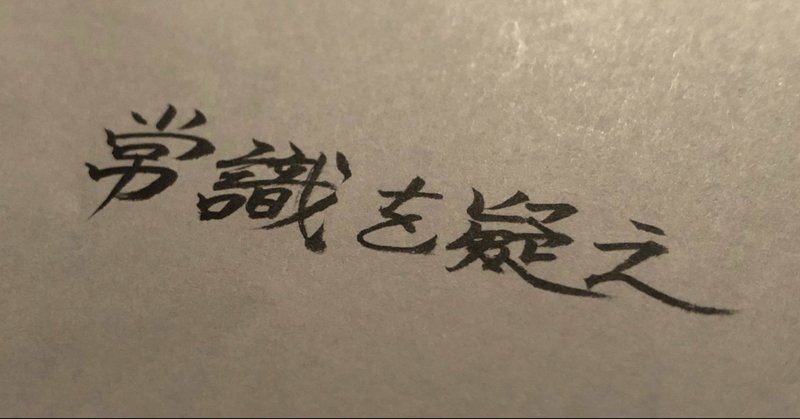 常識を疑え